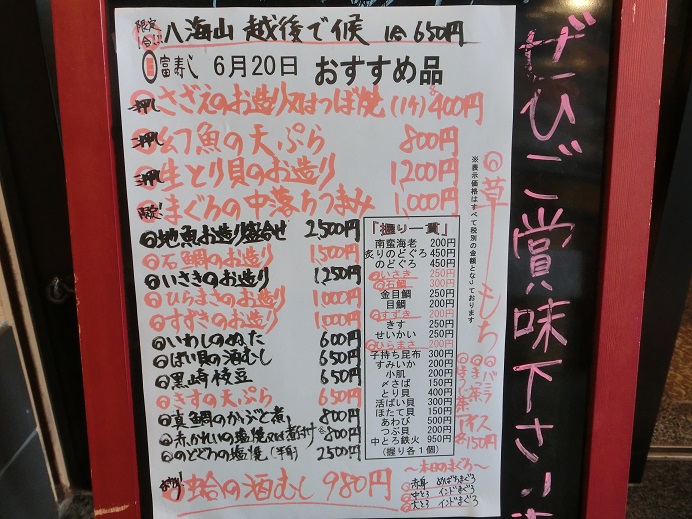 限定
八海山 越後で候 1合 650円
富寿し 6月20日 おすすめ品
押し さざえのお造り又はつぼ焼 (1ケ) 400円
押し 幻魚の天ぷら 800円
押し 生とり貝のお造り 1200円
限定 まぐろの中落ちつまみ 1,000円
地魚お造り盛合せ 2,500円
石鯛のお造り 1,500円
いさきのお造り 1,250円
ひらまさのお造り 1,000円
すずきのお造り 1,000円
いわしのぬた 600円
ばい貝の酒むし 650円
黒崎枝豆 650円
きすの天ぷら 650円
真鯛のかぶと煮 800円
赤かれいの塩焼又は煮付け 800円
のどぐろの塩焼 (半身) 2500円
蛤の酒むし 980円
「握り一貫」
南蛮海老 200円
炙りのどぐろ 450円
のどぐろ 450円
いさき 250円
石鯛 300円
金目鯛 250円
目鯛 200円
すずき 200円
きす 250円
せいかい 250円
ひらまさ 200円
子持ち昆布 300円
すみいか 200円
小肌 200円
〆さば 150円
とり貝 400円
活ばい貝 300円
ほたて貝 150円
あわび 500円
つぶ貝 200円
中とろ鉄火 950円
(握り各1個)
※表示価格はすべて税別の金額となっております
草もち
バニラ
まっ茶
アイス
各150円
〜本日のまぐろ〜
赤身 めばちまぐろ
中とろ インドまぐろ
大とろ インドまぐろ
ぜひご賞味下さい